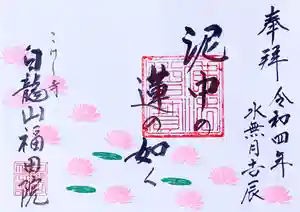 奉拝
令和四年
水無月吉辰
泥中の
蓮の如く
こけし寺
白龍山福田院